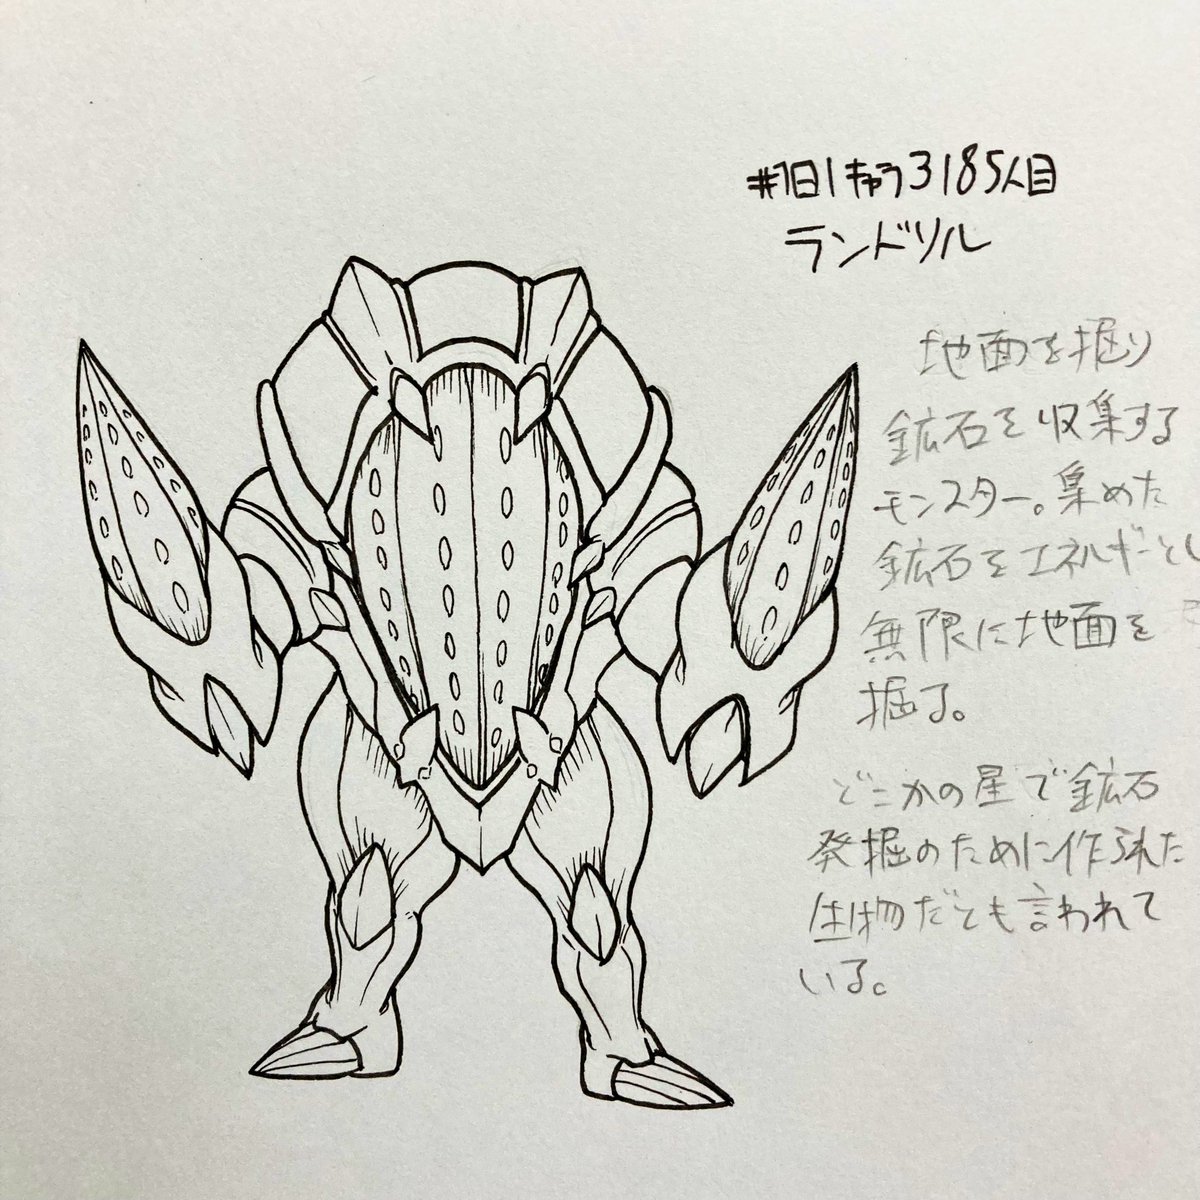 #1日1きゅう3185人目
ランドリル
地面を掘り
鉱石を収集する
モンスター。集めた
鉱石をエネルギーとし
無限に地面を
掘る。
どこかの星で鉱石
発掘のために作られた
生物だとも言われて
いる。